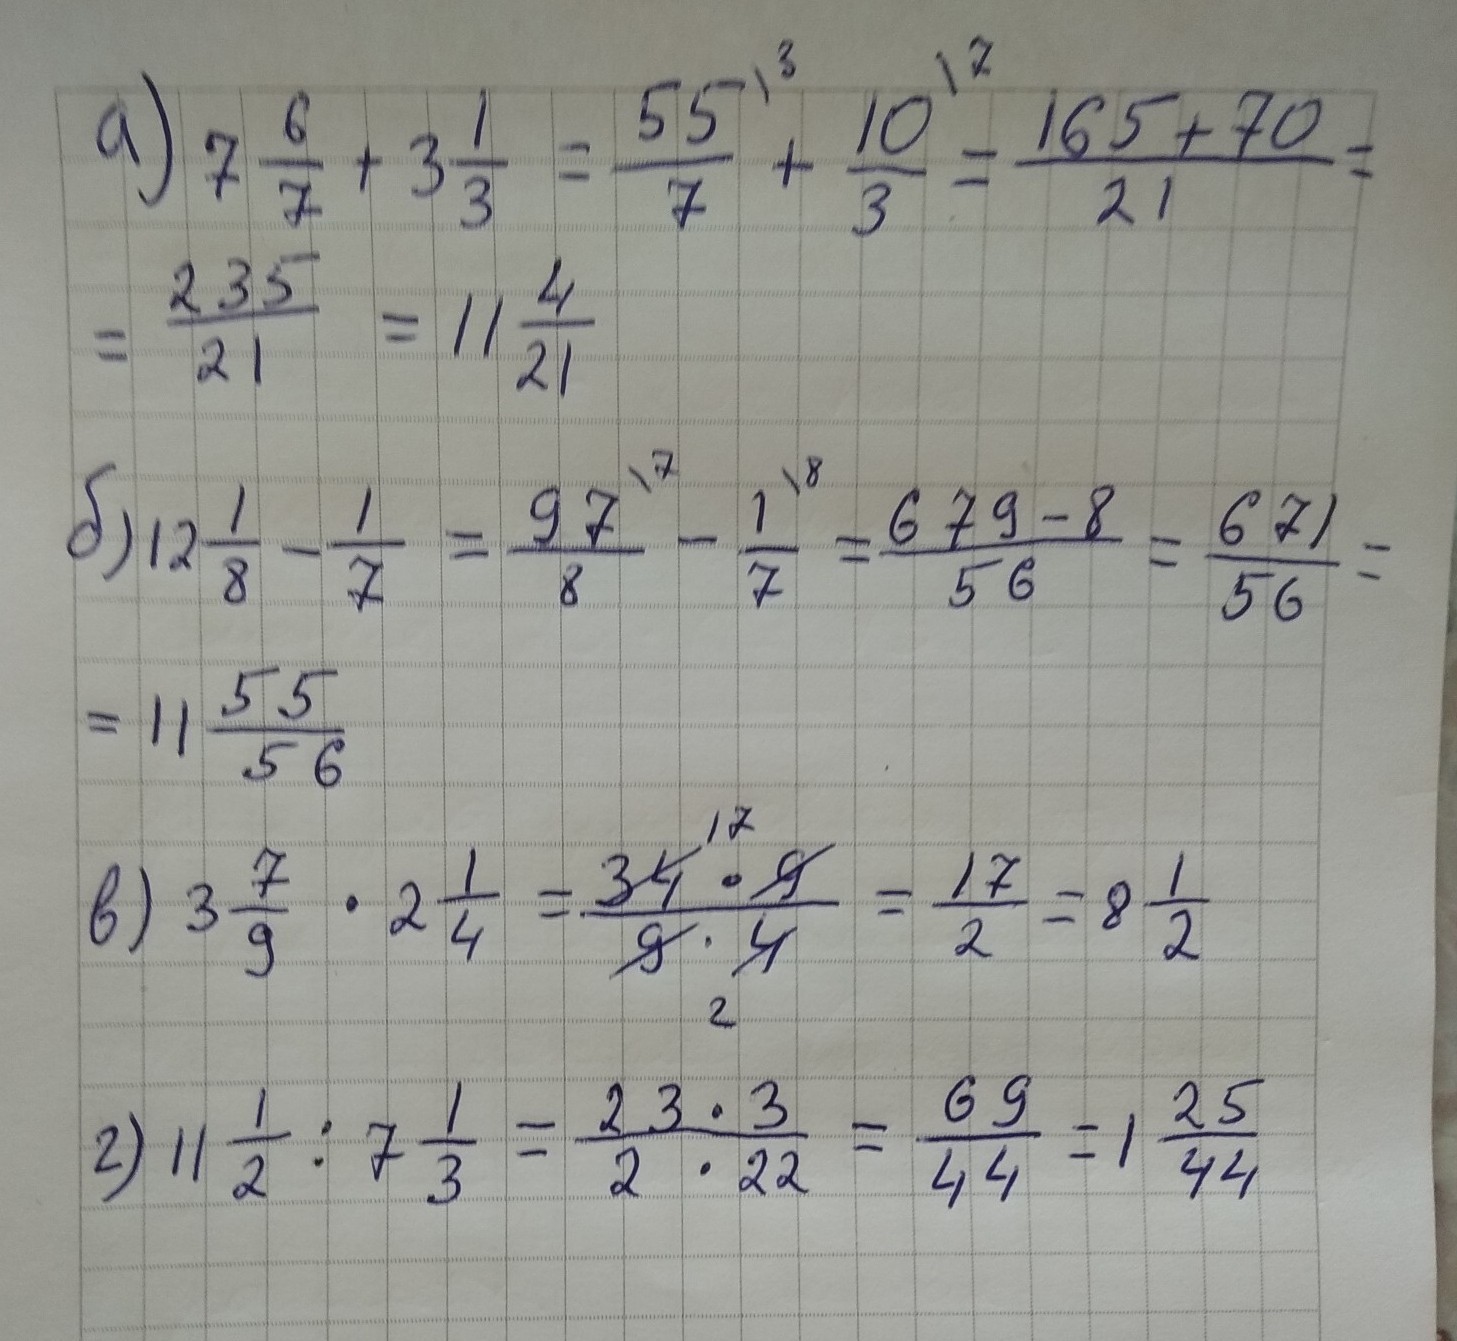 а) 7 6/7 + 3 1/3 = 55/7 \3 + 10/3 \7 = (165+70)/21 =
= 235/21 = 11 4/21
б) 12 1/8 - 1/7 = 97/8 \7 - 1/7 \8 = (679-8)/56 = 671/56 =
= 11 55/56
в) 3 7/9 · 2 1/4 = (34 17 · 9)/(9 · 4 2) = 17/2 = 8 1/2
г) 11 1/2 : 7 1/3 = (23 · 3)/(2 · 22) = 69/44 = 1 25/44